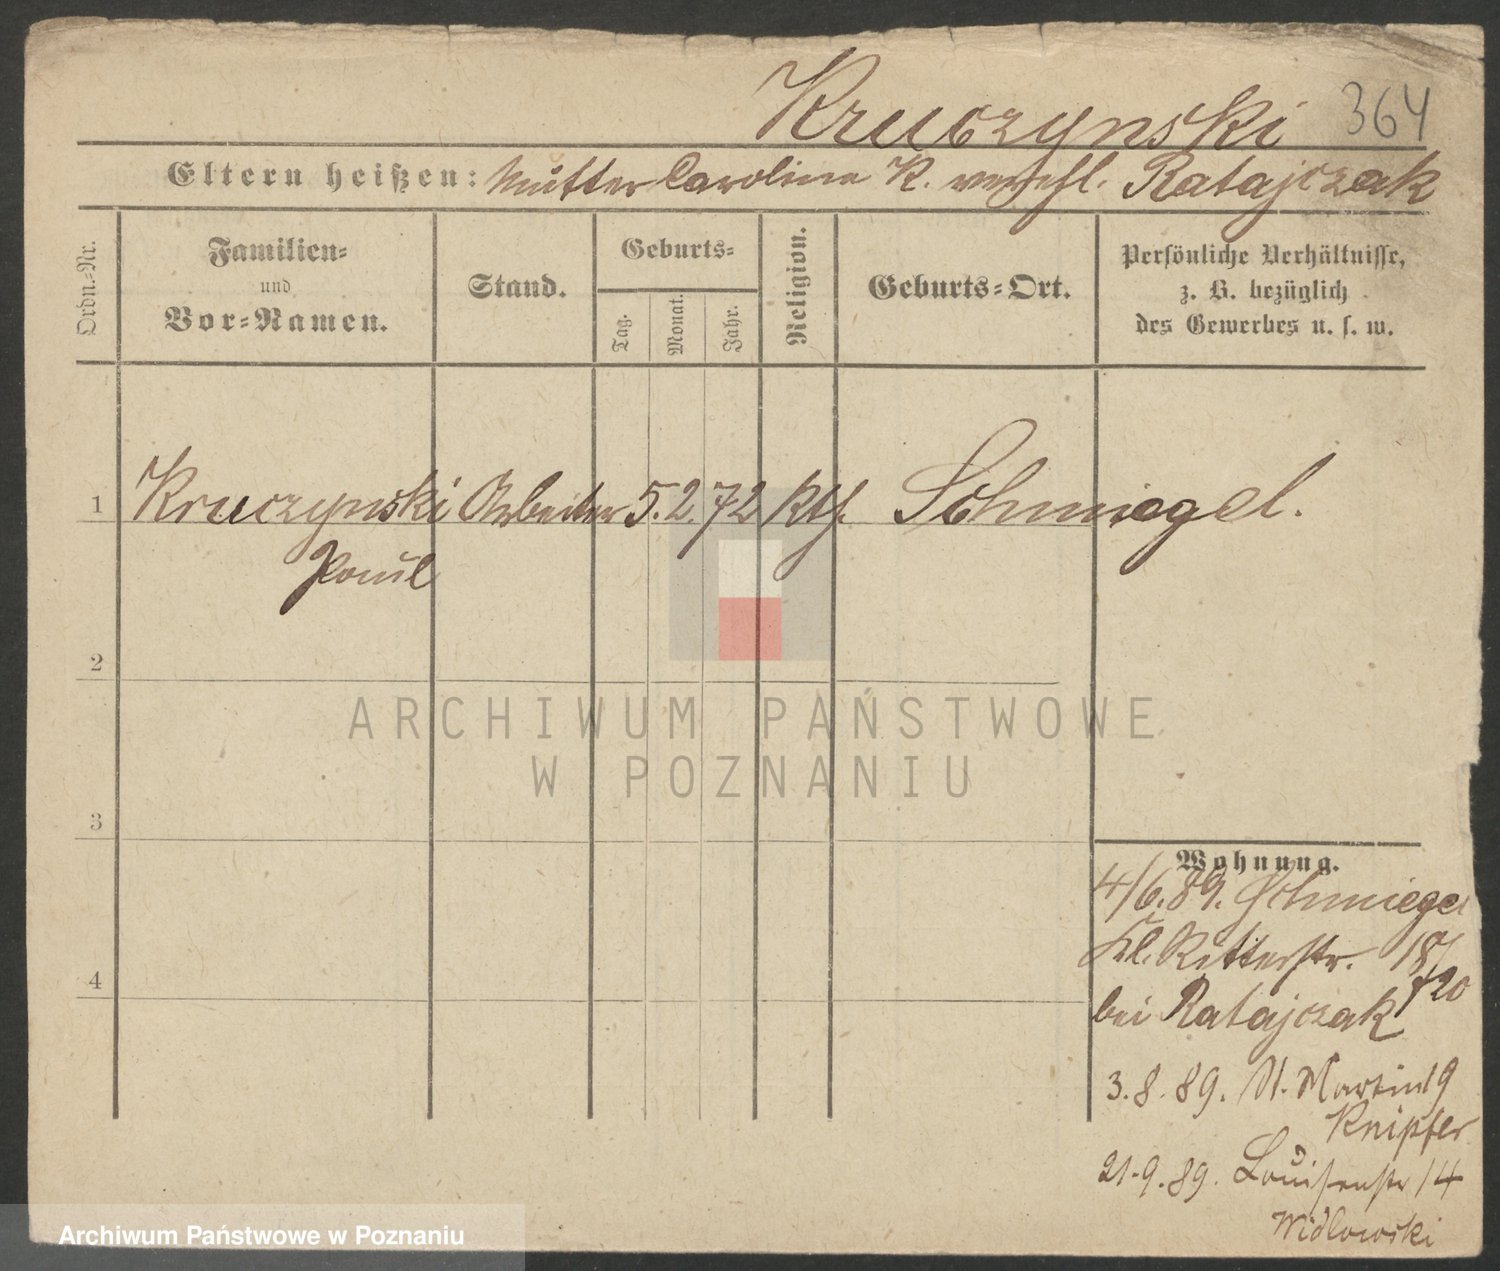 Kruczynski 364
Eltern heißen: Mutter Caroline K. verehl. Ratajczak
Ordn.-Nr.
Familien-
und
Vor-Namen.
Stand.
Geburts-
Tag.
Monat.
Jahr.
Religion.
Geburts-Ort.
Persönliche Verhältnisse,
z. B. bezüglich
des Gewerbes u. s. w.
1 Kruczynski Arbeiter 5. 2. 72 kth. Schmiegel.
Paul
2
3
4
Wohnung.
4/6. 89. Schmiegel
Kl. Ritterstr.
bei Ratajczak
3. 8. 89. St. Martin 19
Knipfer
21. 9. 89. Louisenstr 14
Widlowski
ARCHIWUM PAŃSTWOWE
W POZNANIU
Archiwum Państwowe w Poznaniu